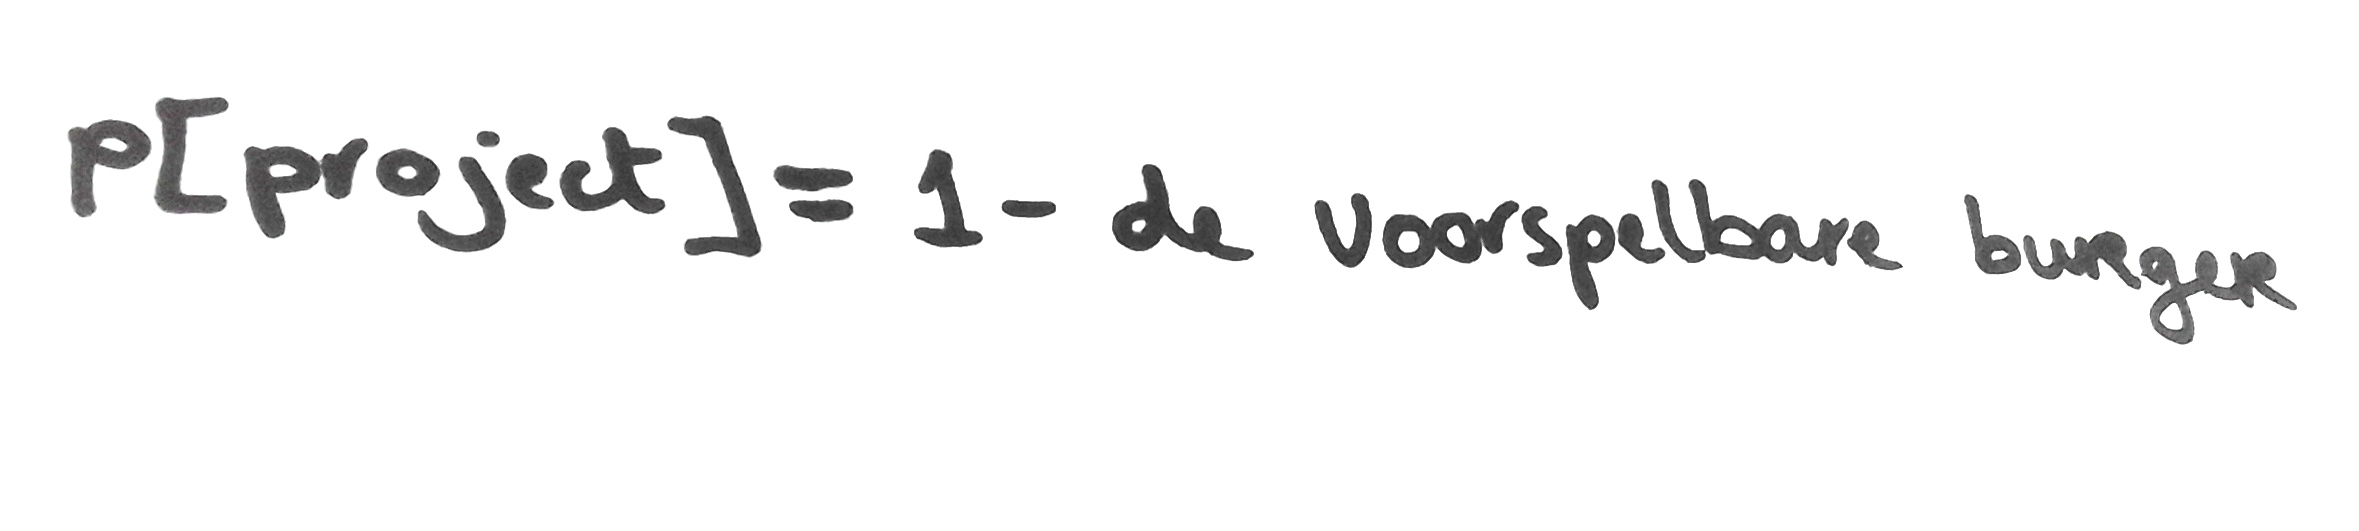 P[project] = 1 - de voorspelbare burger